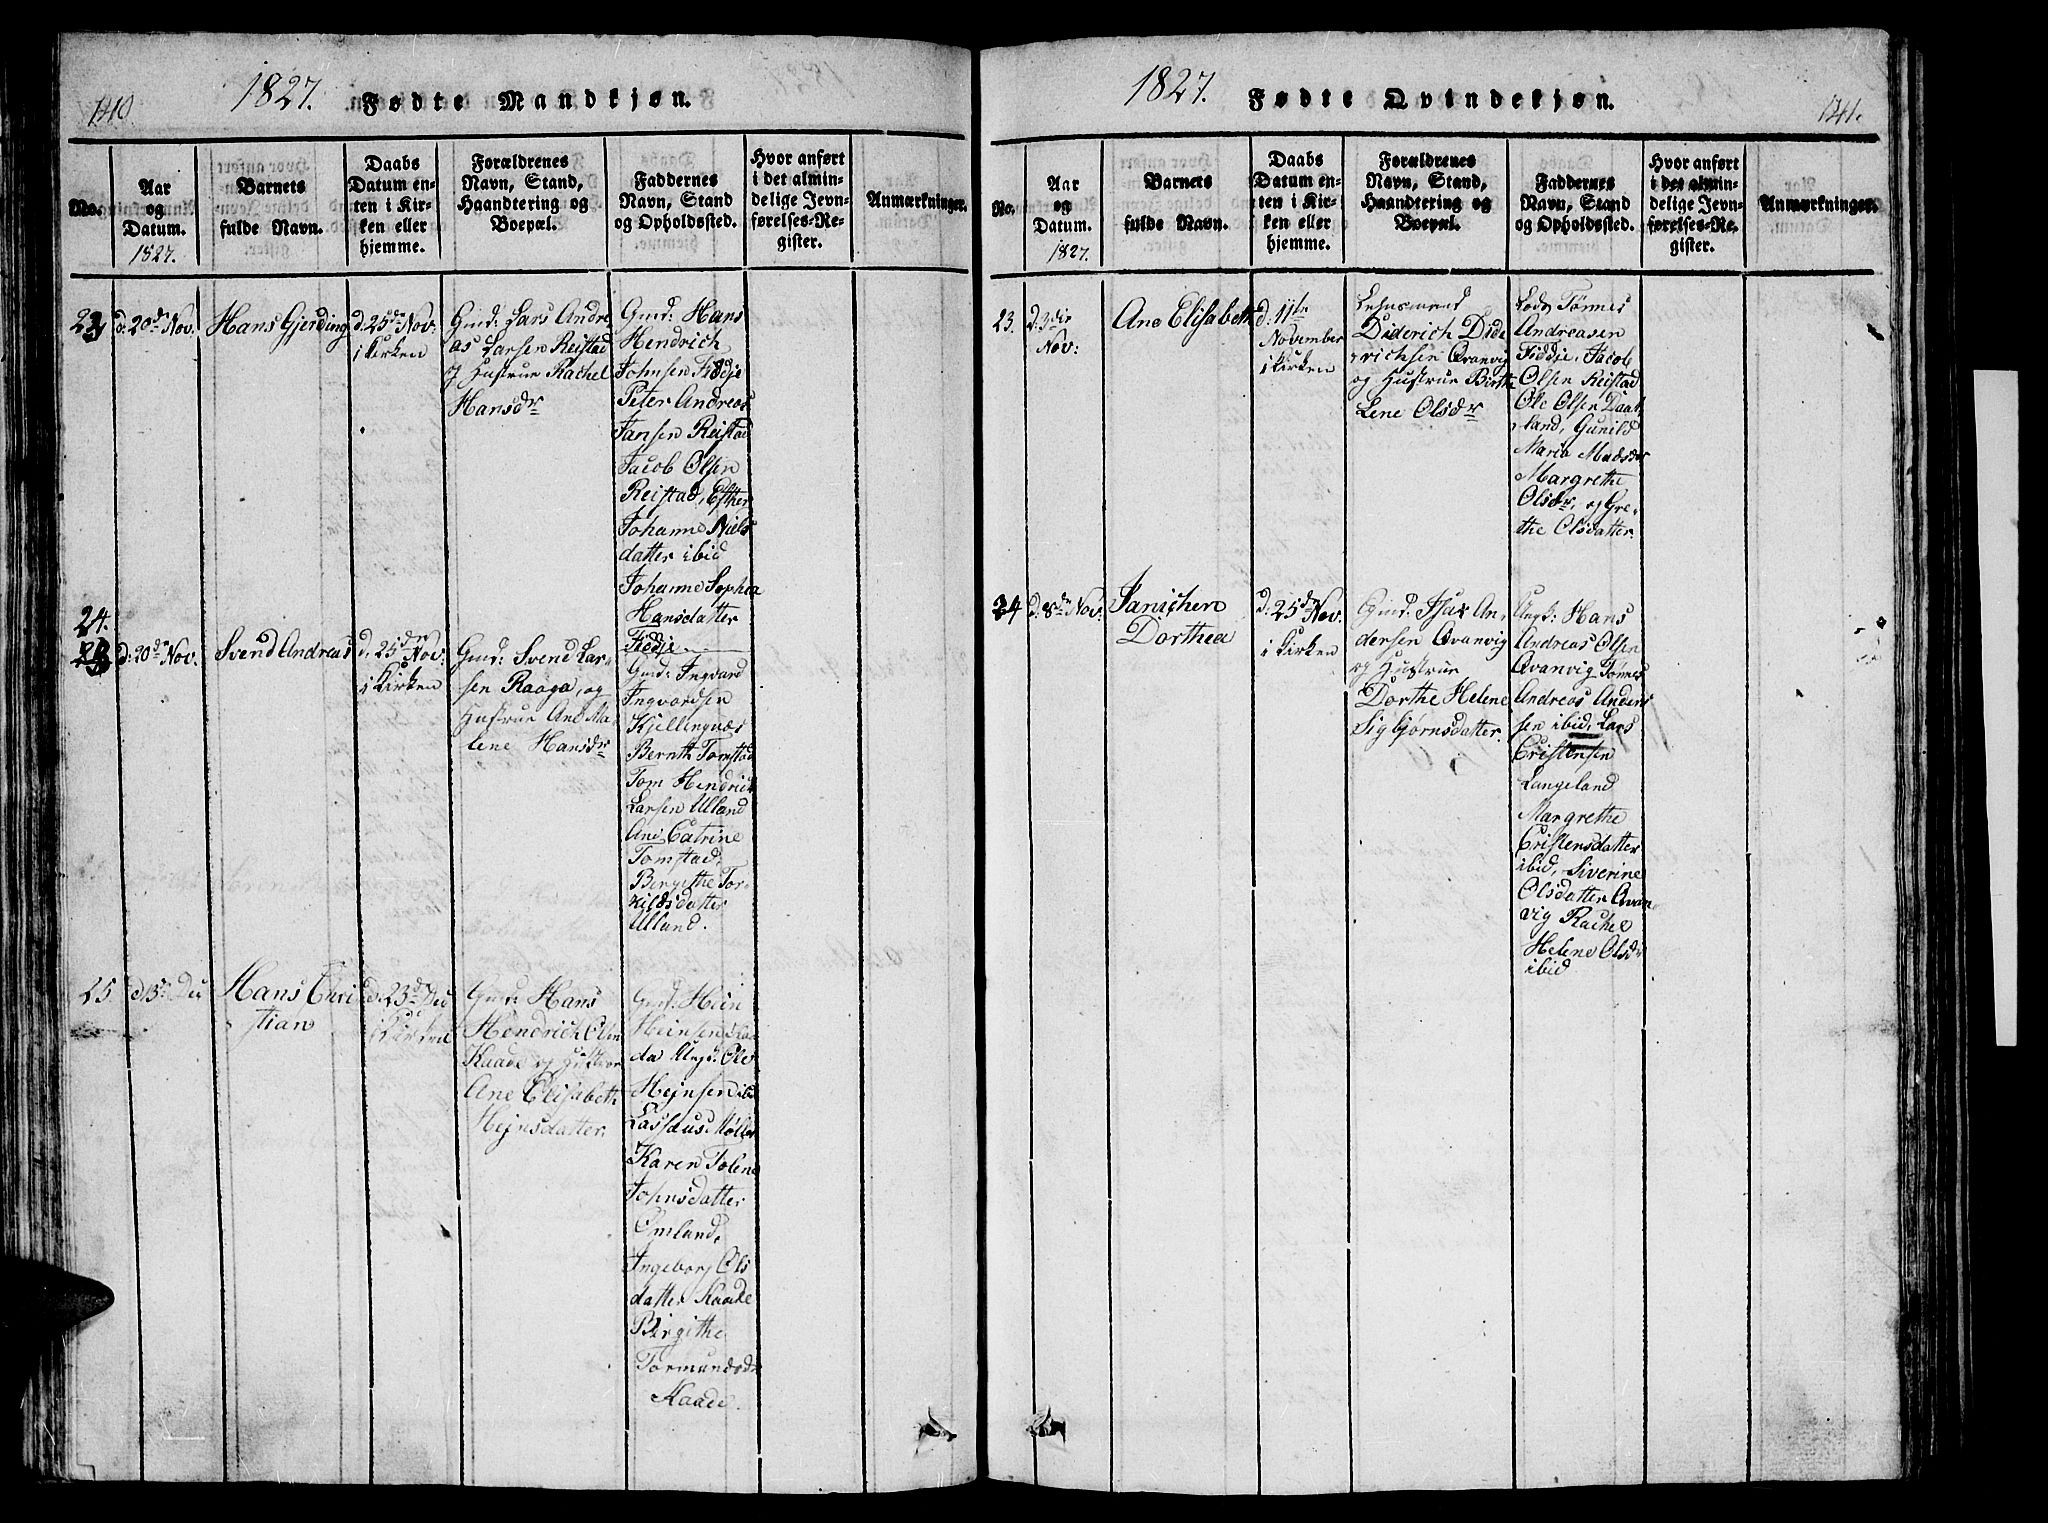 140.
1827. Fødte Mandkjøn.
No.
Aar
og
Datum.
1827.
Barnets
fulde Navn.
Daabs
Datum en-
ten i Kir-
ken eller
hjemme.
Forældrenes
Navn, Stand,
Haandtering og
Boepæl.
Faddernes
Navn, Stand
og Opholdssted.
Hvor anført
i det almin-
delige Jevn-
førelses-Re-
gister.
Anmærkninger.
23
d: 20de Nov.
Hans Gjerding
d: 25de Nov:
i Kirken
Gmd: Lars Andre
as Larsen Reistad
og Hustrue Rachel
Hansdr
Gmd: Hans
Hendrich
Johnsen Fidje
Peter Andreas
Jansen Reistad
Jacob Olsen
Reistad, Esther
Johanne Niels
datter ibid
Johanne Sophia
Hansdatter
Fidje
24.
d: 20de Nov.
Svend Andreas
d: 25de Nov:
i Kirken
Gmd: Svend Lar-
sen Raaga, og
Hustrue Ane Ma-
lene Hansdr
Gmd: Ingvard
Ingvardsen
Kjellingnæs
Bernth Tomstad
Tom Hendrik
Larsen Ulland
Ane Catrine
Tomstad,
Bergithe Tor-
kildsdatter
Ulland.
25
d 13de Dec
Hans Chri
stian
d. 23de Dec
i Kirken
Gmd: Hans
Hendrich Olsen
Kaade og Hustrue
Ane Elisabeth
Hejnsdatter.
Gmd: Hein
Heinsen
da Ungd: Ole
Hejnsen ibd
Lassæus Møller
Karen Tolene
Johnsdatter
Omland,
Ingeborg Ols
datter Kaade
Birgithe
Tormundsd.
Kaade.
1827. Fødte Qvindekjøn.
141.
No.
Aar
og
Datum.
1827.
Barnets
fulde Navn.
Daabs
Datum en-
ten i Kir-
ken eller
hjemme.
Forældrenes
Navn, Stand,
Haandtering og
Boepæl.
Faddernes
Navn, Stand
og Opholdssted.
Hvor anført
i det almin-
delige Jevn-
førelses-Re-
gister.
Anmærkninger.
23.
d: 3die
Nov:
Ane Elisabeth
d: 11te
November
i Kirken
Lehnsmand
Diderich Dide
richsen Qvanvig
og Hustrue Birthe
Lene Olsdr
Lods Tønnes
Andreasen
Fiddje, Jacob
Olsen Reistad
Ole Olsen Daat
land, Gunild
Maria Madsdr
Margrethe
Olsdr, og Gre-
the Olsdatter.
24
d: 8de Nov:
Janichen
Dorthea
d: 25de Nov.
i Kirken
Gmd: Isac An
dersen Qvanvig
og Hustrue
Dorthe Helene
Sigbjørnsdatter.
Ungk: Hans
Andreas Olsen
Qvanvig Tønnes
Andreas Anders
sen ibid, Lars
Cristensen
Langeland
Margrethe
Cristensdatter
ibid, Siverine
Olsdatter Qvan
vig Rachel
Helene Olsdr
ibid